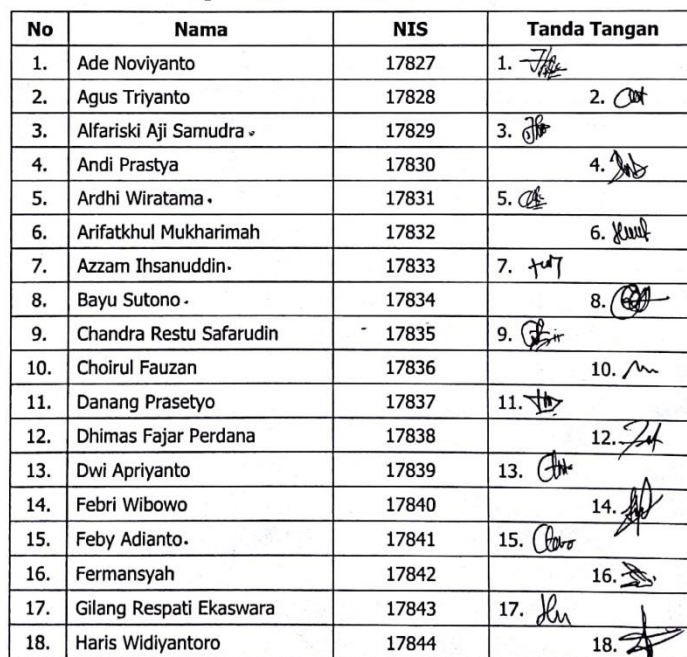 No Nama NIS Tanda Tangan
1. Ade Noviyanto 17827 1.
2. Agus Triyanto 17828 2.
3. Alfariski Aji Samudra 17829 3.
4. Andi Prastya 17830 4.
5. Ardhi Wiratama 17831 5.
6. Arifatkhul Mukharimah 17832 6.
7. Azzam Ihsanuddin 17833 7.
8. Bayu Sutono 17834 8.
9. Chandra Restu Safarudin 17835 9.
10. Choirul Fauzan 17836 10.
11. Danang Prasetyo 17837 11.
12. Dhimas Fajar Perdana 17838 12.
13. Dwi Apriyanto 17839 13.
14. Febri Wibowo 17840 14.
15. Feby Adianto 17841 15.
16. Fermansyah 17842 16.
17. Gilang Respati Ekaswara 17843 17.
18. Haris Widiyantoro 17844 18.